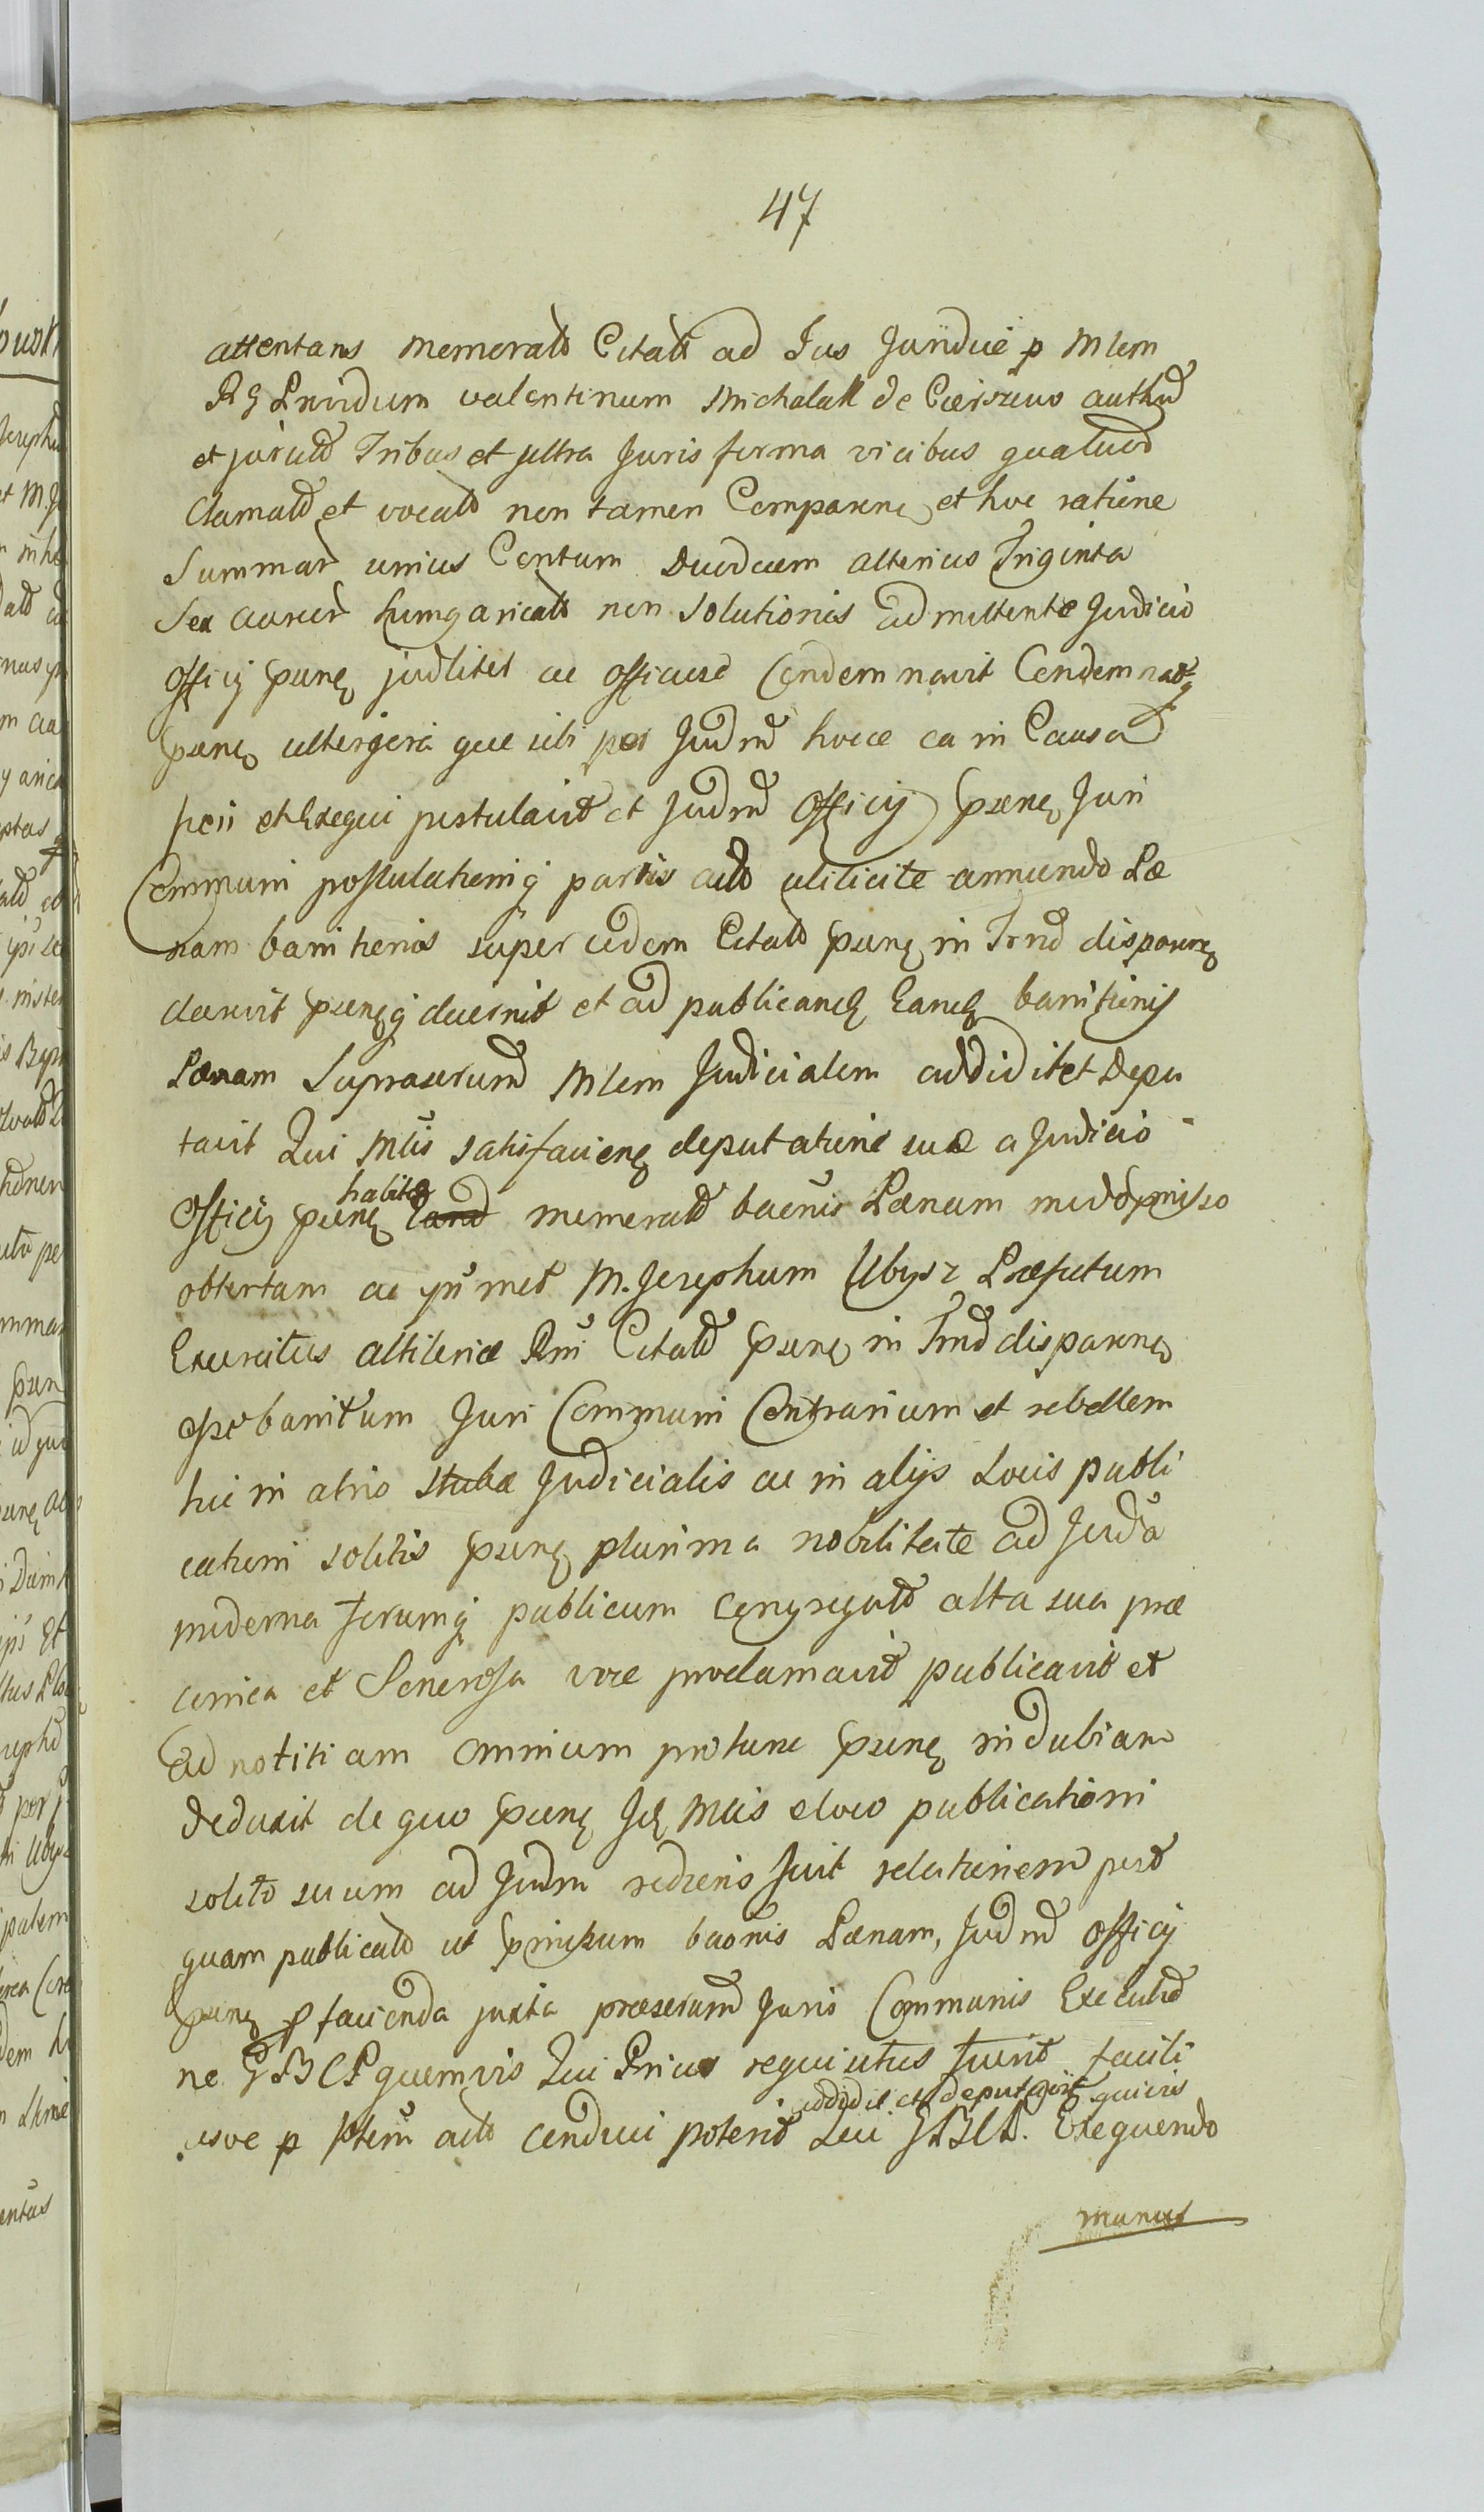 47
attentans memorato Citato ad Jus Juridice p Mlem
RG Providum valentinum Michalak de authm
et jurato Tribus et ultra Juris forma vicibus quatuor
Clamato et vocato non tamen Comparene et hoc ratione
Summar unius Centum Duodecim alterius Triginta
Sex aureor hungaricalo non solutionis admittente Judicio
Officij psene judliter ac officiose Condemnavit Condemnatq
psene ulterjora que sibi per Judm hocce ea in Causa
fieri et Exequi postulavit et Judm Officij psene Juri
Communi postulationiq partis acto utilicite annuendo Pæ
nam banitionis super eodem Citato psene in Trno disparene
decrevit pseneq decernit et ad publicande Eande banitionis
Pænam Suprascrum Mlem Judicialem addidit et Depu
tavit Qui Mlis satisfaciene deputationi suæ a Judicio
Officij psene habitæ memorato baenis Pænam modo pmisso
obtentam ac psmet M. Josephum Ubysz Præfectum
Exercitus altileriæ Rni Citato psene in Trno disparene
pro banitum Juri Communi Contrarium et rebellem
hic in atrio stubæ Judicialis ac in alijs Locis publi
cationi solitis psene plurima nobilitate ad Juda
moderna forumq publicum congregato alta sua præ
conica et Senerosa voce proclamavit publicavit et
ad notitiam omnium protunc psene indubiam
deduxit de quo psene Ide Mlis eloco publicationi
solito suum ad Judm rediens fecit relationem post
quam publicato ut pmissum baonis Pænam, Judm Officij
psene p facienda juxta præscrum Juris Communis Executio
ne GBCP quemvis Qui Prius requisitus fuerit facili
addidit et deputavit quivis
usve p Ptem acto conduci poterit Qui Exequendo
munus